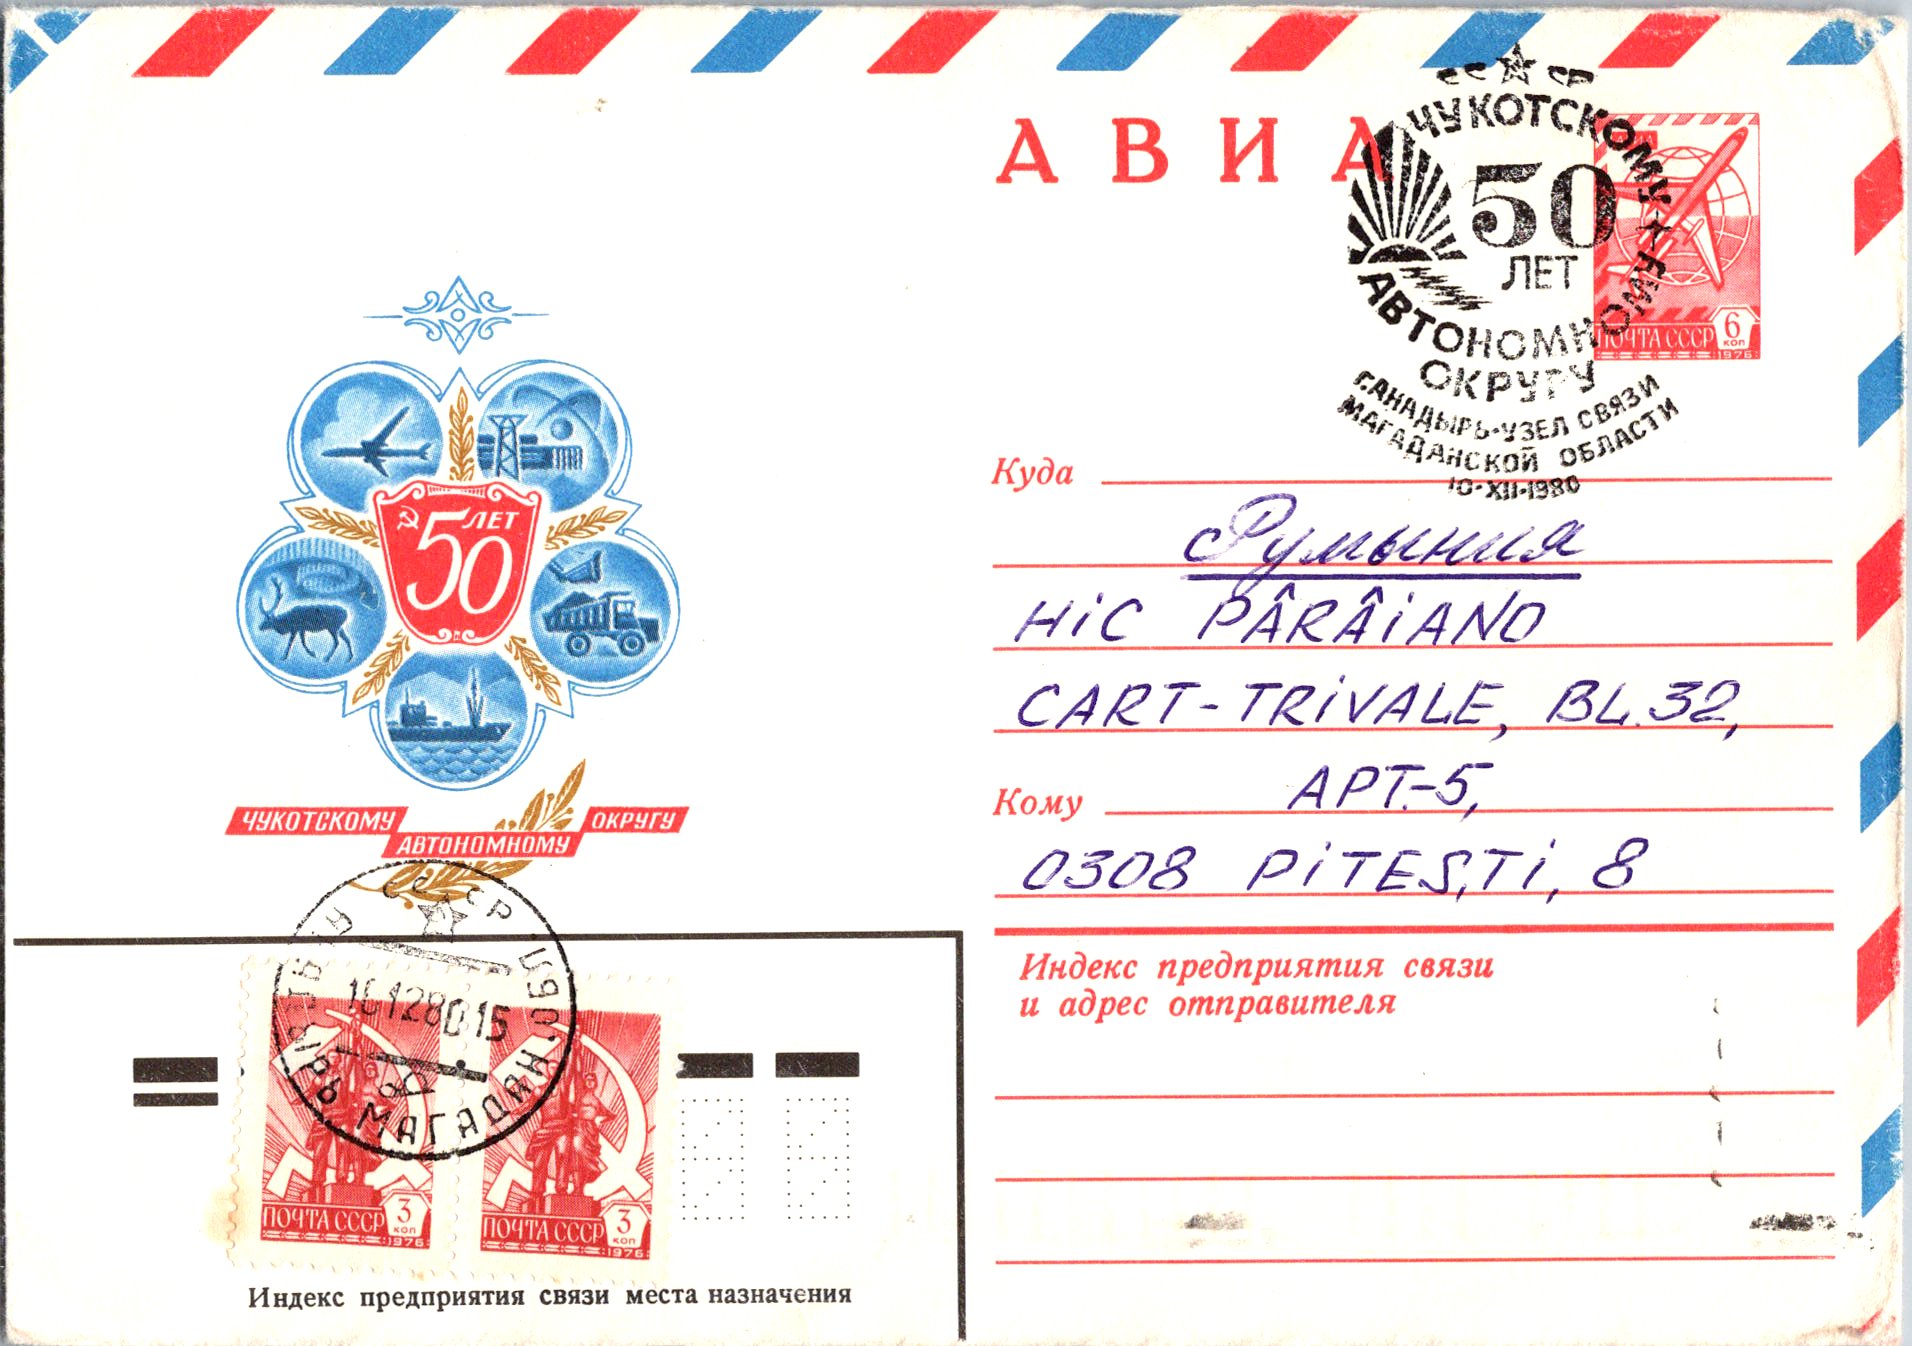 АВИА
СССР
ЧУКОТСКОМУ
АВТОНОМНОМУ
50
ЛЕТ
ОКРУГУ
Г.АНАДЫРЬ-УЗЕЛ СВЯЗИ
МАГАДАНСКОЙ ОБЛАСТИ
10-XII-1980
ПОЧТА СССР
6
КОП
1976
50 ЛЕТ
ЧУКОТСКОМУ
АВТОНОМНОМУ
ОКРУГУ
Куда
Румыния
HiC PÂRÂiANO
CART-TRiVALE, BL.32,
Кому
APT.-5,
0308 PiTEȘTi, 8
Индекс предприятия связи
и адрес отправителя
СССР
МАГАДАН. ОБЛ
ПОЧТА СССР
3
КОП
1976
ПОЧТА СССР
3
КОП
1976
Индекс предприятия связи места назначения